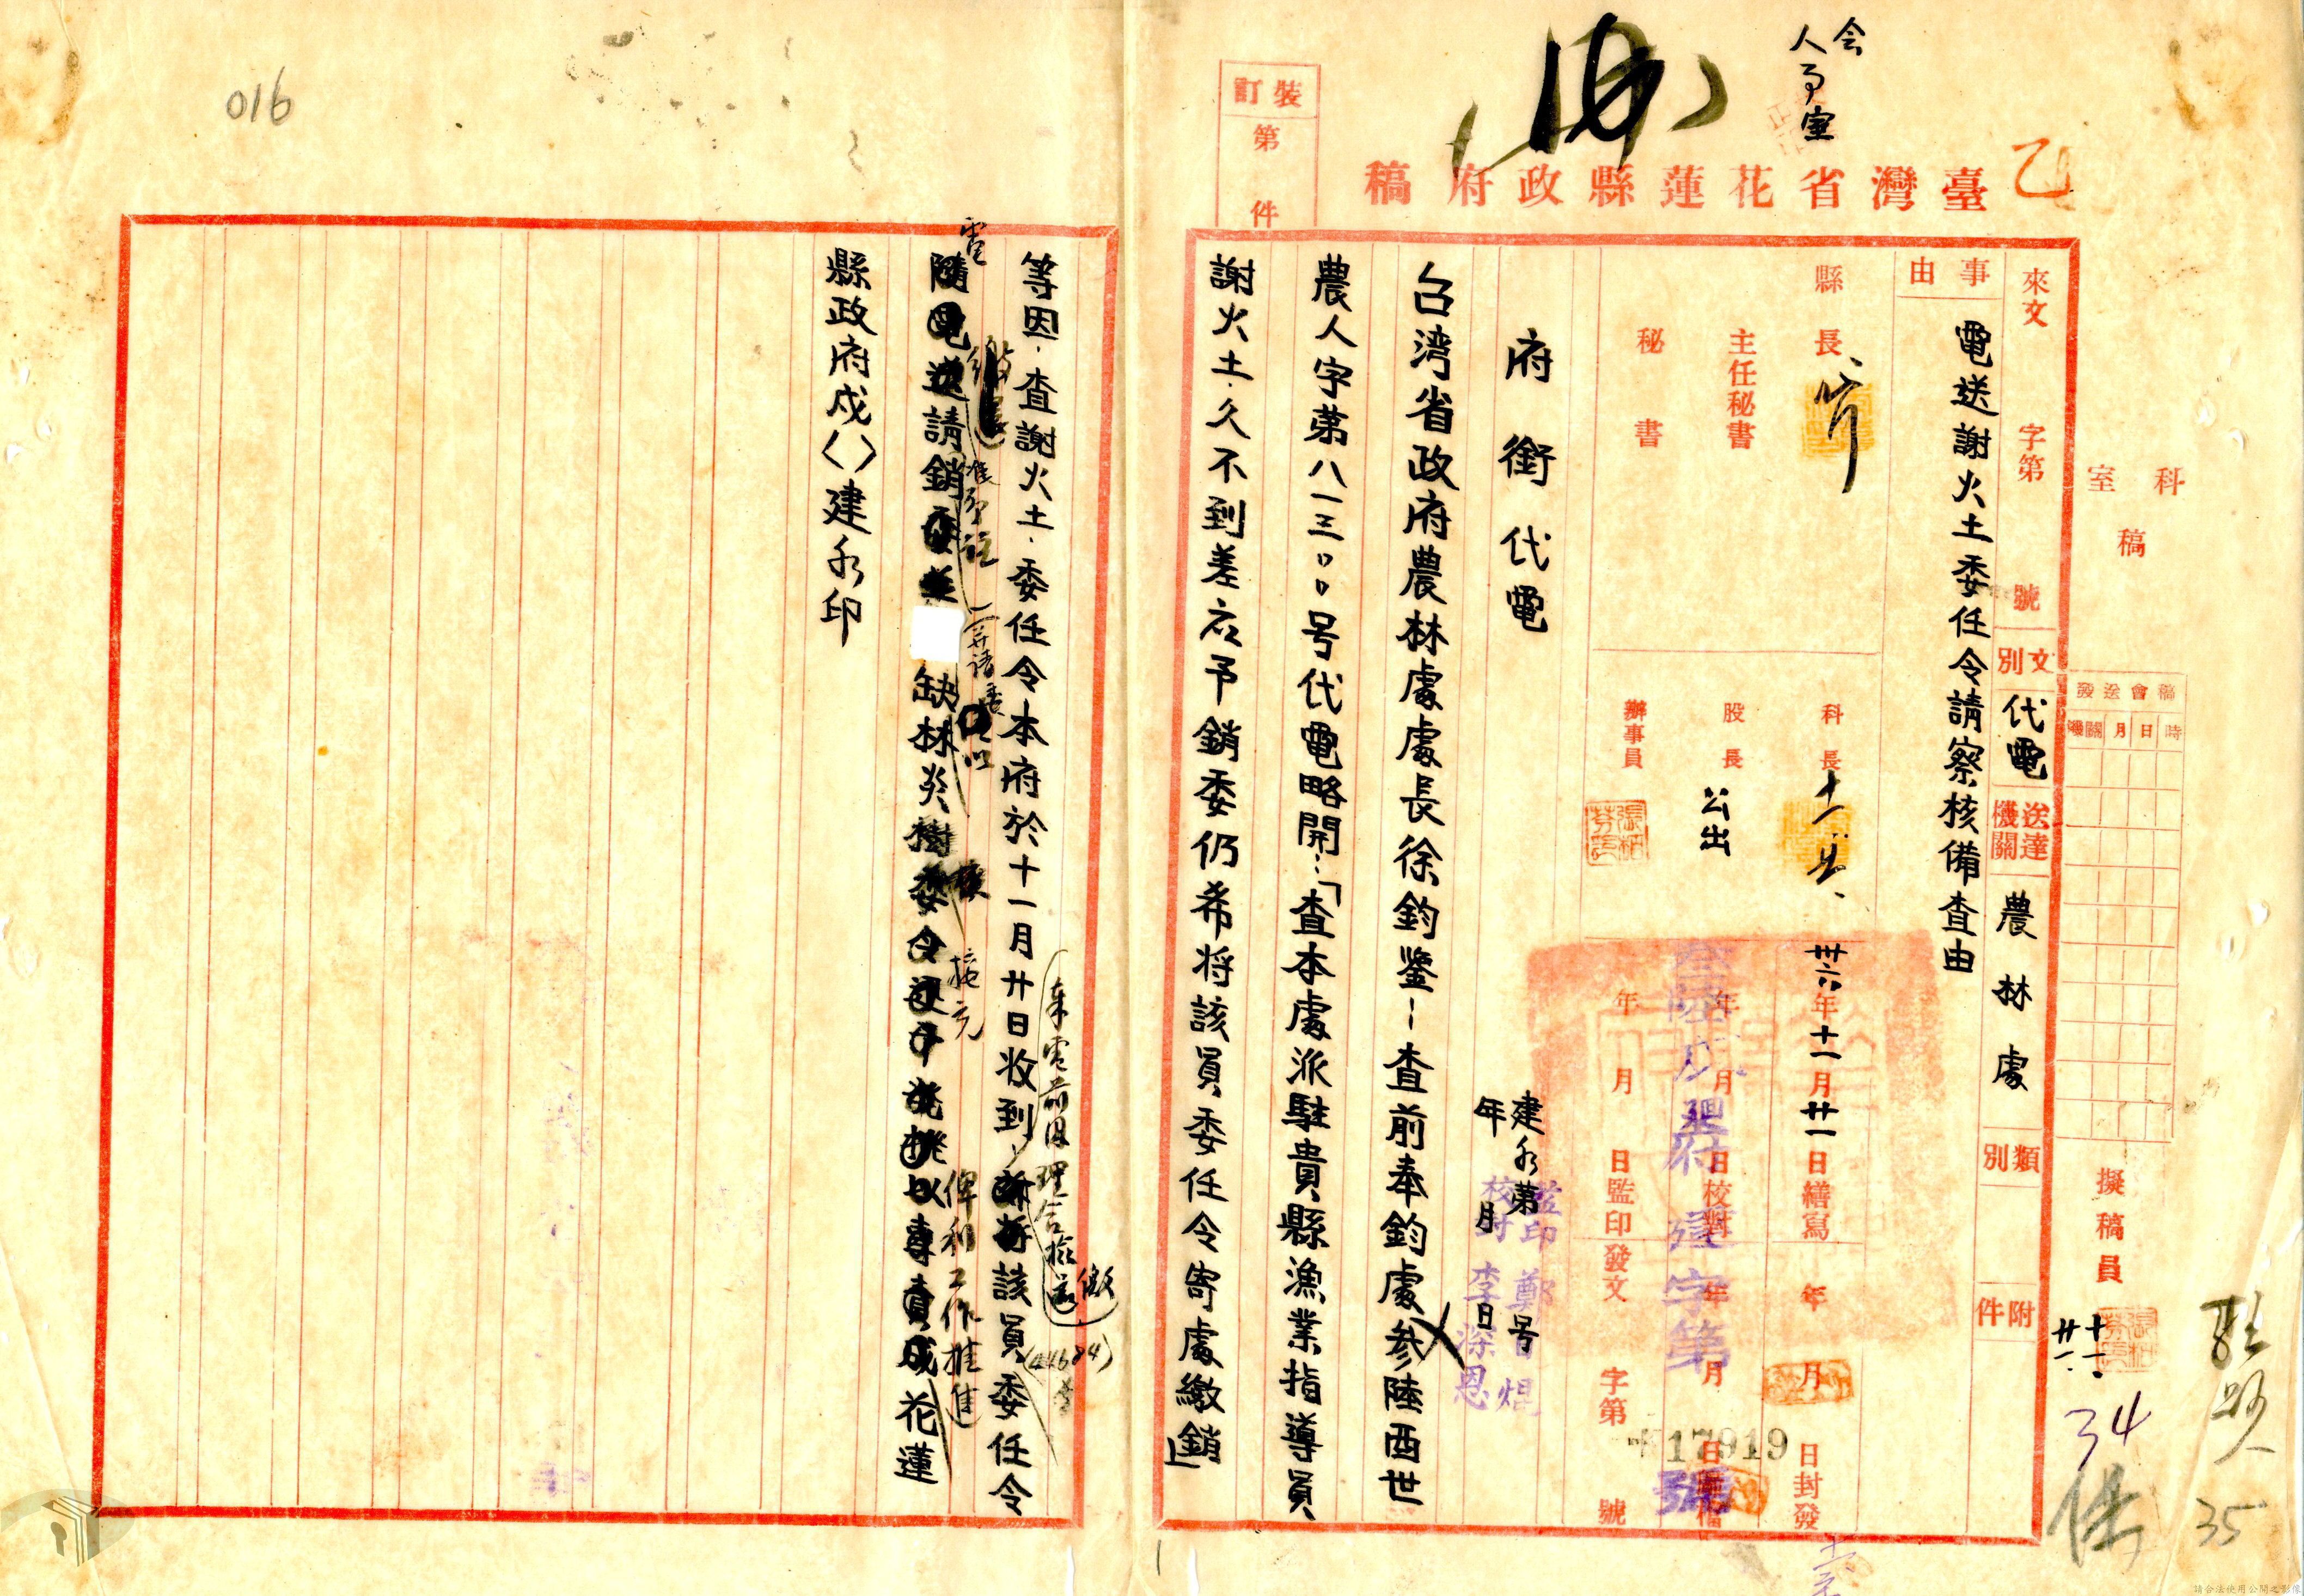 会
人事室
乙
臺灣省花蓮縣政府稿
裝訂
第
件
科
室
稿
稿會送發
時
日
月
機關
擬稿員
十一
廿一
34
35
來文
字第
號
文別
代電
送達機關
農林處
類別
附件
事由
電送謝火土委任令請察核備查由
縣長
主任秘書
秘書
科長
十一
股長
公出
辦事員
卅六年十一月廿一日繕寫
年月日校對
年月日監印
年月日封發
發文
字第
號
17919
監印
校對
府銜代電
建永第 号
年 月 日
台湾省政府農林處處長徐鈞鑒-查前奉鈞處参陸酉世
農人字第八一三〇〇号代電略開:「查本處派駐貴縣漁業指導員
謝火土久不到差應予銷委仍希将該員委任令寄處繳銷」
等因、查謝火土、委任令本府於十一月廿日收到、
該員委任令
來電前因理合檢
(44684)
電
請銷
缺林炎樹
接充
俾利工作推進
專責
花蓮
縣政府戍〈〉建永印
016
請合法使用公開之影像